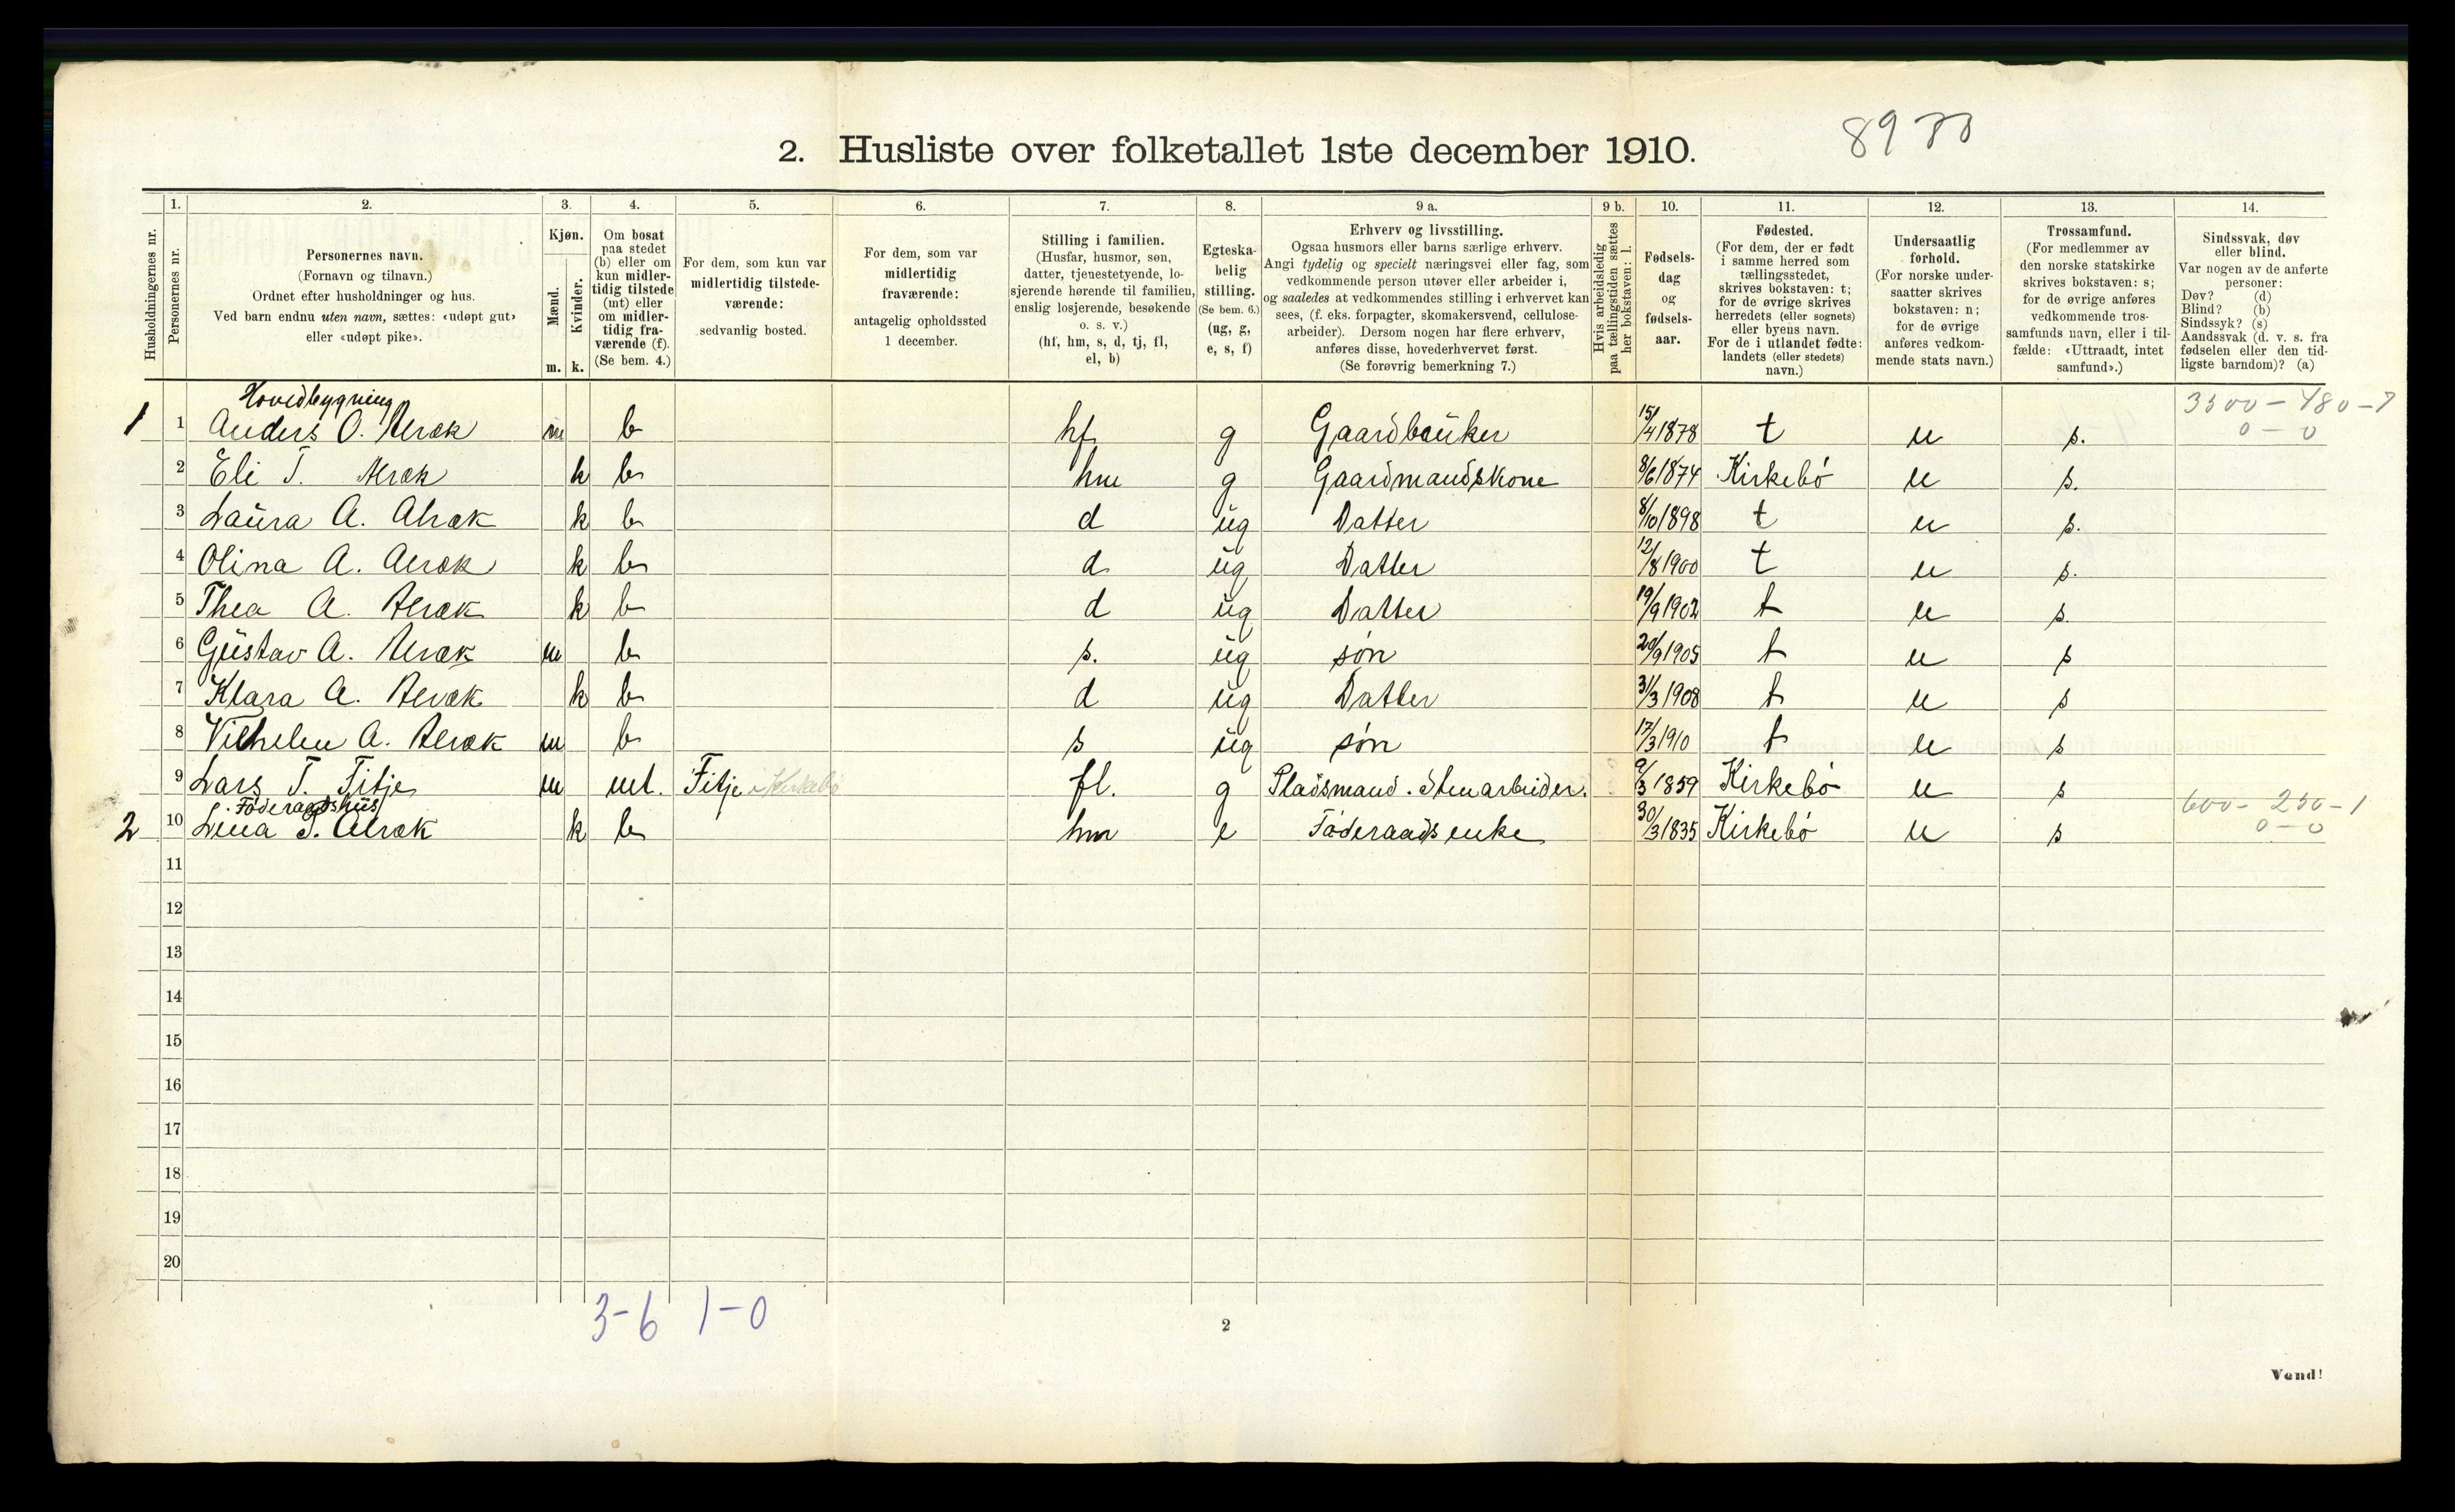 2. Husliste over folketallet 1ste december 1910.
Husholdningernes nr.
1.
Personernes nr.
2.
Personernes navn.
(Fornavn og tilnavn.)
Ordnet efter husholdninger og hus.
Ved barn endnu uten navn, sættes: «udøpt gut»
eller «udøpt pike».
3.
Kjøn.
Mænd.
Kvinder.
m. k.
4.
Om bosat
paa stedet
(b) eller om
kun midler-
tidig tilstede
(mt) eller
om midler-
tidig fra-
værende (f).
(Se bem. 4.)
5.
For dem, som kun var
midlertidig tilstede-
værende:
sedvanlig bosted.
6.
For dem, som var
midlertidig
fraværende:
antagelig opholdssted
1 december.
7.
Stilling i familien.
(Husfar, husmor, søn,
datter, tjenestetyende, lo-
sjerende hørende til familien,
enslig losjerende, besøkende
o. s. v.)
(hf, hm, s, d, tj, fl,
el, b)
8.
Egteska-
belig
stilling.
(Se bem. 6.)
(ug, g,
e, s, f)
9 a.
Erhverv og livsstilling.
Ogsaa husmors eller barns særlige erhverv.
Angi tydelig og specielt næringsvei eller fag, som
vedkommende person utøver eller arbeider i,
og saaledes at vedkommendes stilling i erhvervet kan
sees, (f. eks. forpagter, skomakersvend, cellulose-
arbeider). Dersom nogen har flere erhverv,
anføres disse, hovederhvervet først.
(Se forøvrig bemerkning 7.)
9 b.
Hvis arbeidsledig
paa tællingstiden sættes
her bokstaven: l.
10.
Fødsels-
dag
og
fødsels-
aar.
11.
Fødested.
(For dem, der er født
i samme herred som
tællingsstedet,
skrives bokstaven: t;
for de øvrige skrives
herredets (eller sognets)
eller byens navn.
For de i utlandet fødte:
landets (eller stedets)
navn.)
12.
Undersaatlig
forhold.
(For norske under-
saatter skrives
bokstaven: n;
for de øvrige
anføres vedkom-
mende stats navn.)
13.
Trossamfund.
(For medlemmer av
den norske statskirke
skrives bokstaven: s;
for de øvrige anføres
vedkommende tros-
samfunds navn, eller i til-
fælde: «Uttraadt, intet
samfund».)
14.
Sindssvak, døv
eller blind.
Var nogen av de anførte
personer:
Døv? (d)
Blind? (b)
Sindssyk? (s)
Aandssvak (d. v. s. fra
fødselen eller den tid-
ligste barndom)? (a)
Hovedbygning
1 1 Anders O. Alræk m b hf g Gaardbruker 15/4 1878 t n s. 0 - 0
2 Eli T. Alræk k b hm g Gaardmandskone 8/6 1874 Kirkebö n s.
3 Laura A. Alræk k b d ug Datter 8/10 1898 t n s.
4 Olina A. Alræk k b d ug Datter 12/8 1900 t n s.
5 Thea A. Alræk k b d ug Datter 19/9 1902 t n s.
6 Gustav A. Alræk m b s. ug søn 20/9 1905 t n s
7 Klara A. Alræk k b d ug Datter 31/3 1908 t n s
8 Vilhelm A. Alræk m b s ug søn 17/3 1910 t n s
9 Lars T. Fitje m mt. Fitje i Kirkebø fl. g Pladsmand. Stenarbeider. 9/3 1859 Kirkebö n s
Föderaadshus 600 - 250 - 1
2 10 Lina T. Alræk k b hm e Föderaads enke 30/3 1835 Kirkebö n s 0 - 0
11
12
13
14
15
16
17
18
19
20
3-6 1-0
2
Vend!